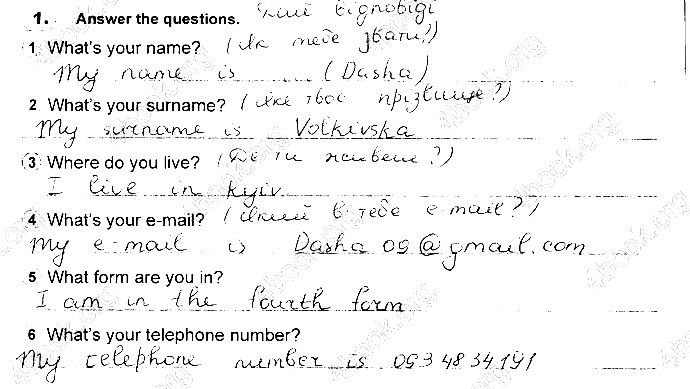 1. Answer the questions. відповіді
1 What's your name? (як тебе звати?)
My name is ....... (Dasha)
2 What's your surname? (яке твоє прізвище?)
My surname is Volkivska
3 Where do you live? (Де ти живеш?)
I live in Kyiv.
4 What's your e-mail? (який в тебе e-mail?)
My e-mail is Dasha 09@gmail.com
5 What form are you in?
I am in the fourth form
6 What's your telephone number?
My telephone number is 093 48 34 191
4book.org